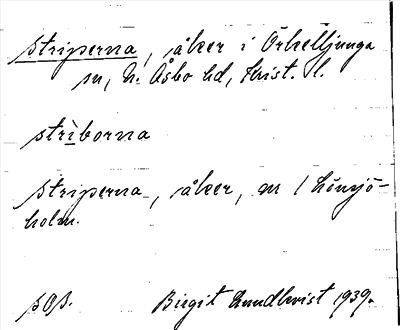 Striperna, åker i Örkelljunga
sn, N. Åsbo hd, Krist. l.
strìborna
Striperna, åker, nr 1 Lönsjö-
holm.
Birgit Lundkvist 1939.